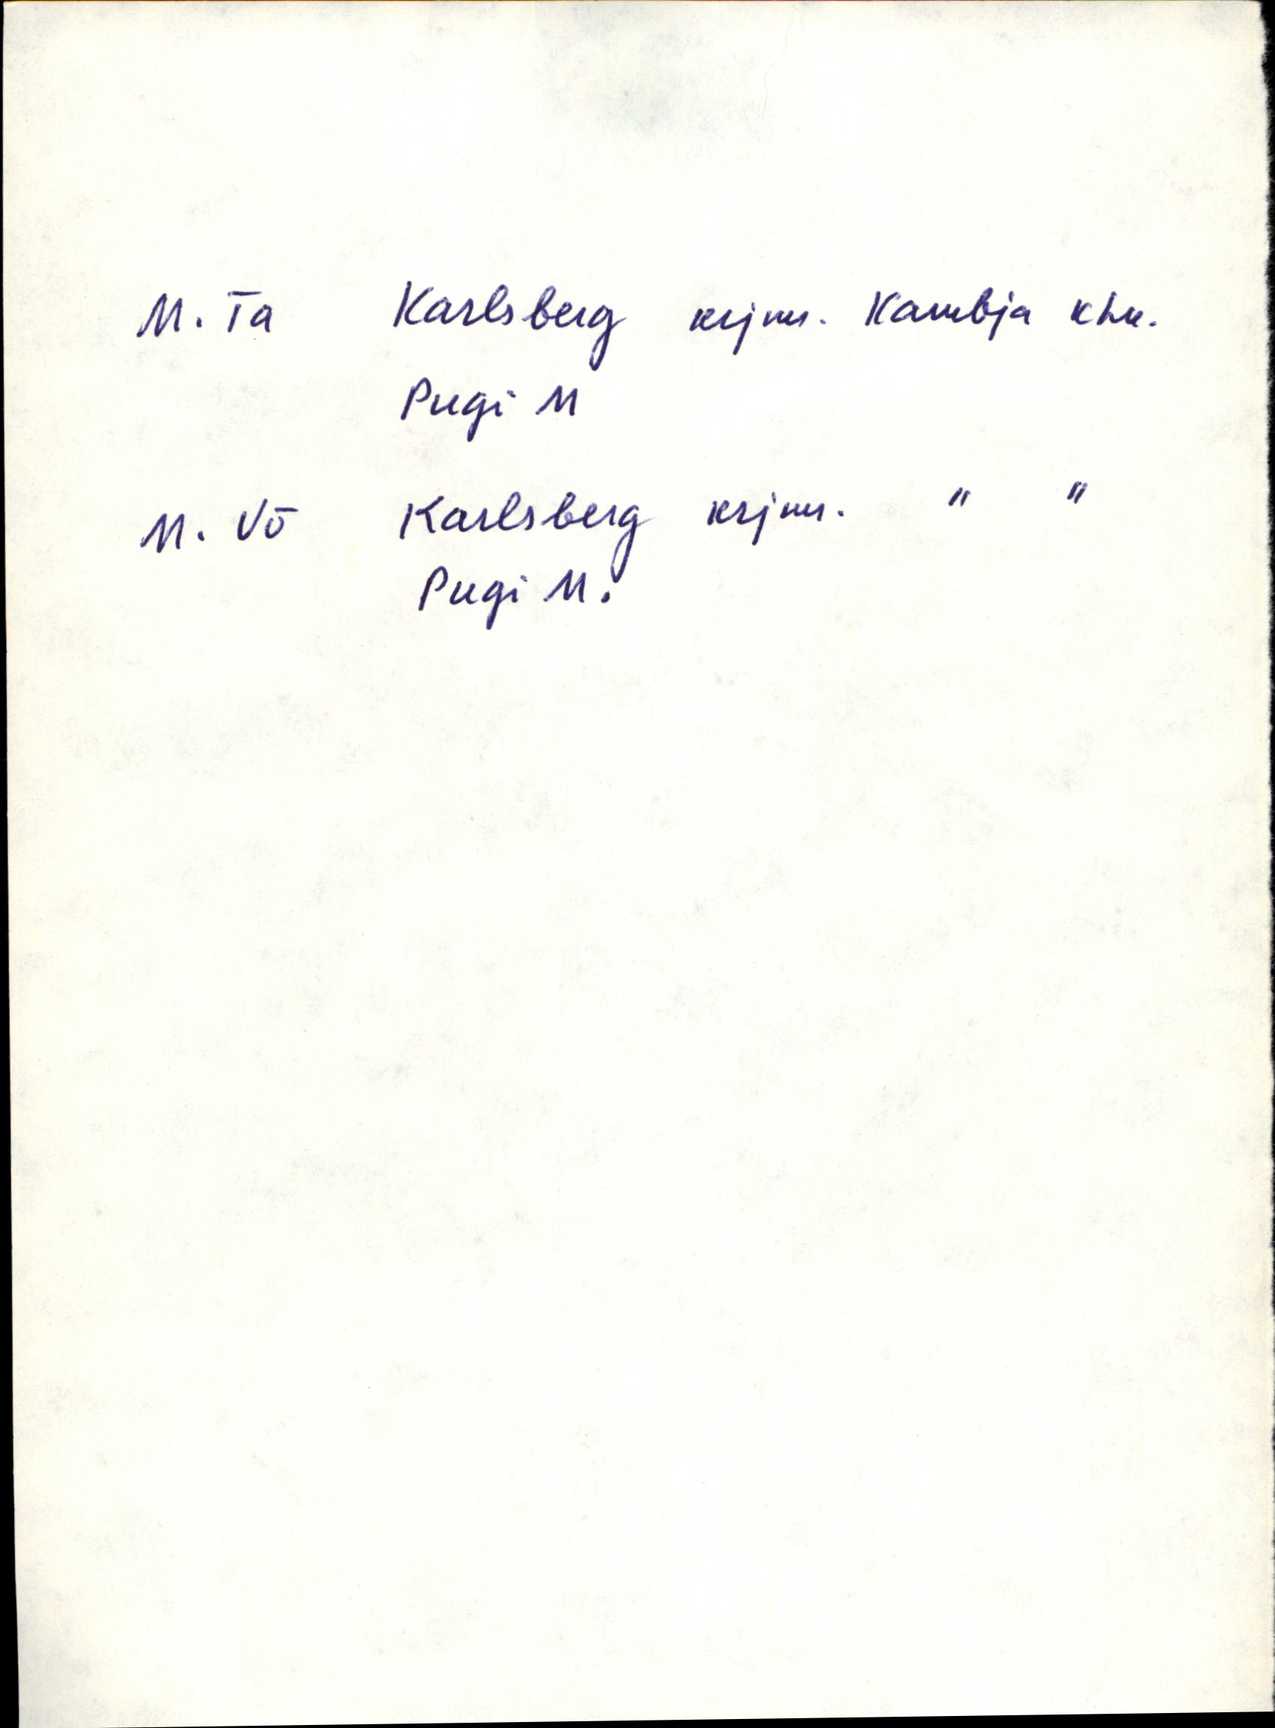 M. Ta Karlsberg krjm. Kambja khk.
Pugi M
M. Võ Karlsberg krjm. " "
Pugi M.